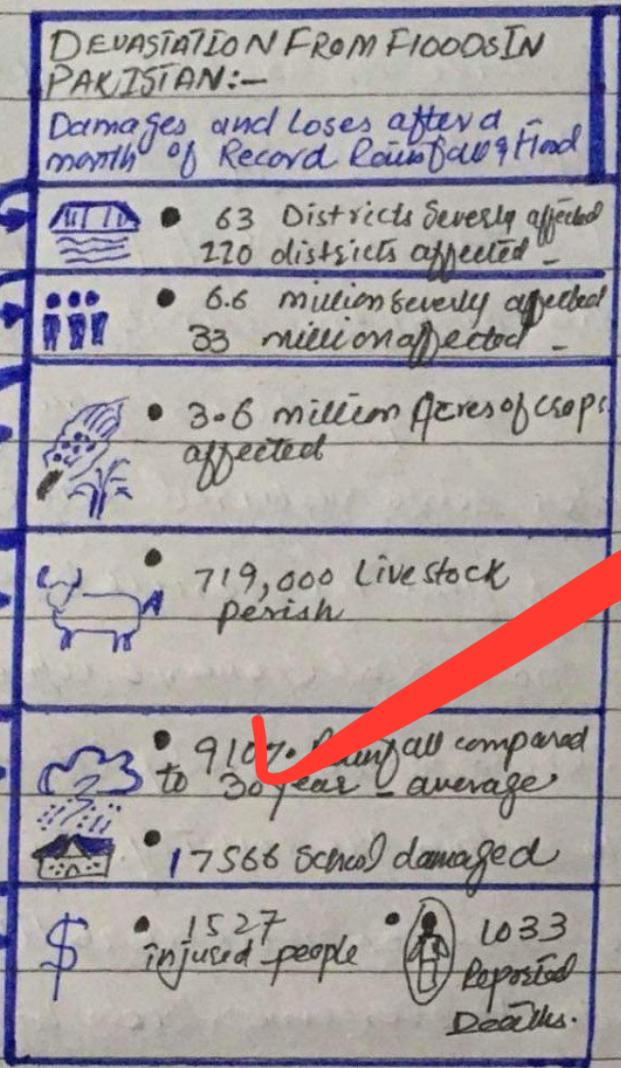 DEVASTATION FROM FLOODS IN
PAKISTAN:-
Damages and Loses after a
month of Record Rainfall & Flood
63 Districts Severly affected
110 districts affected -
6.6 million severly affected
33 million affected -
3.6 million Acres of crops
affected
719,000 Livestock
perish
910% Rainfall compared
to 30 year - average
17566 School damaged
$
1527
injured people
1033
Reported
Deaths.